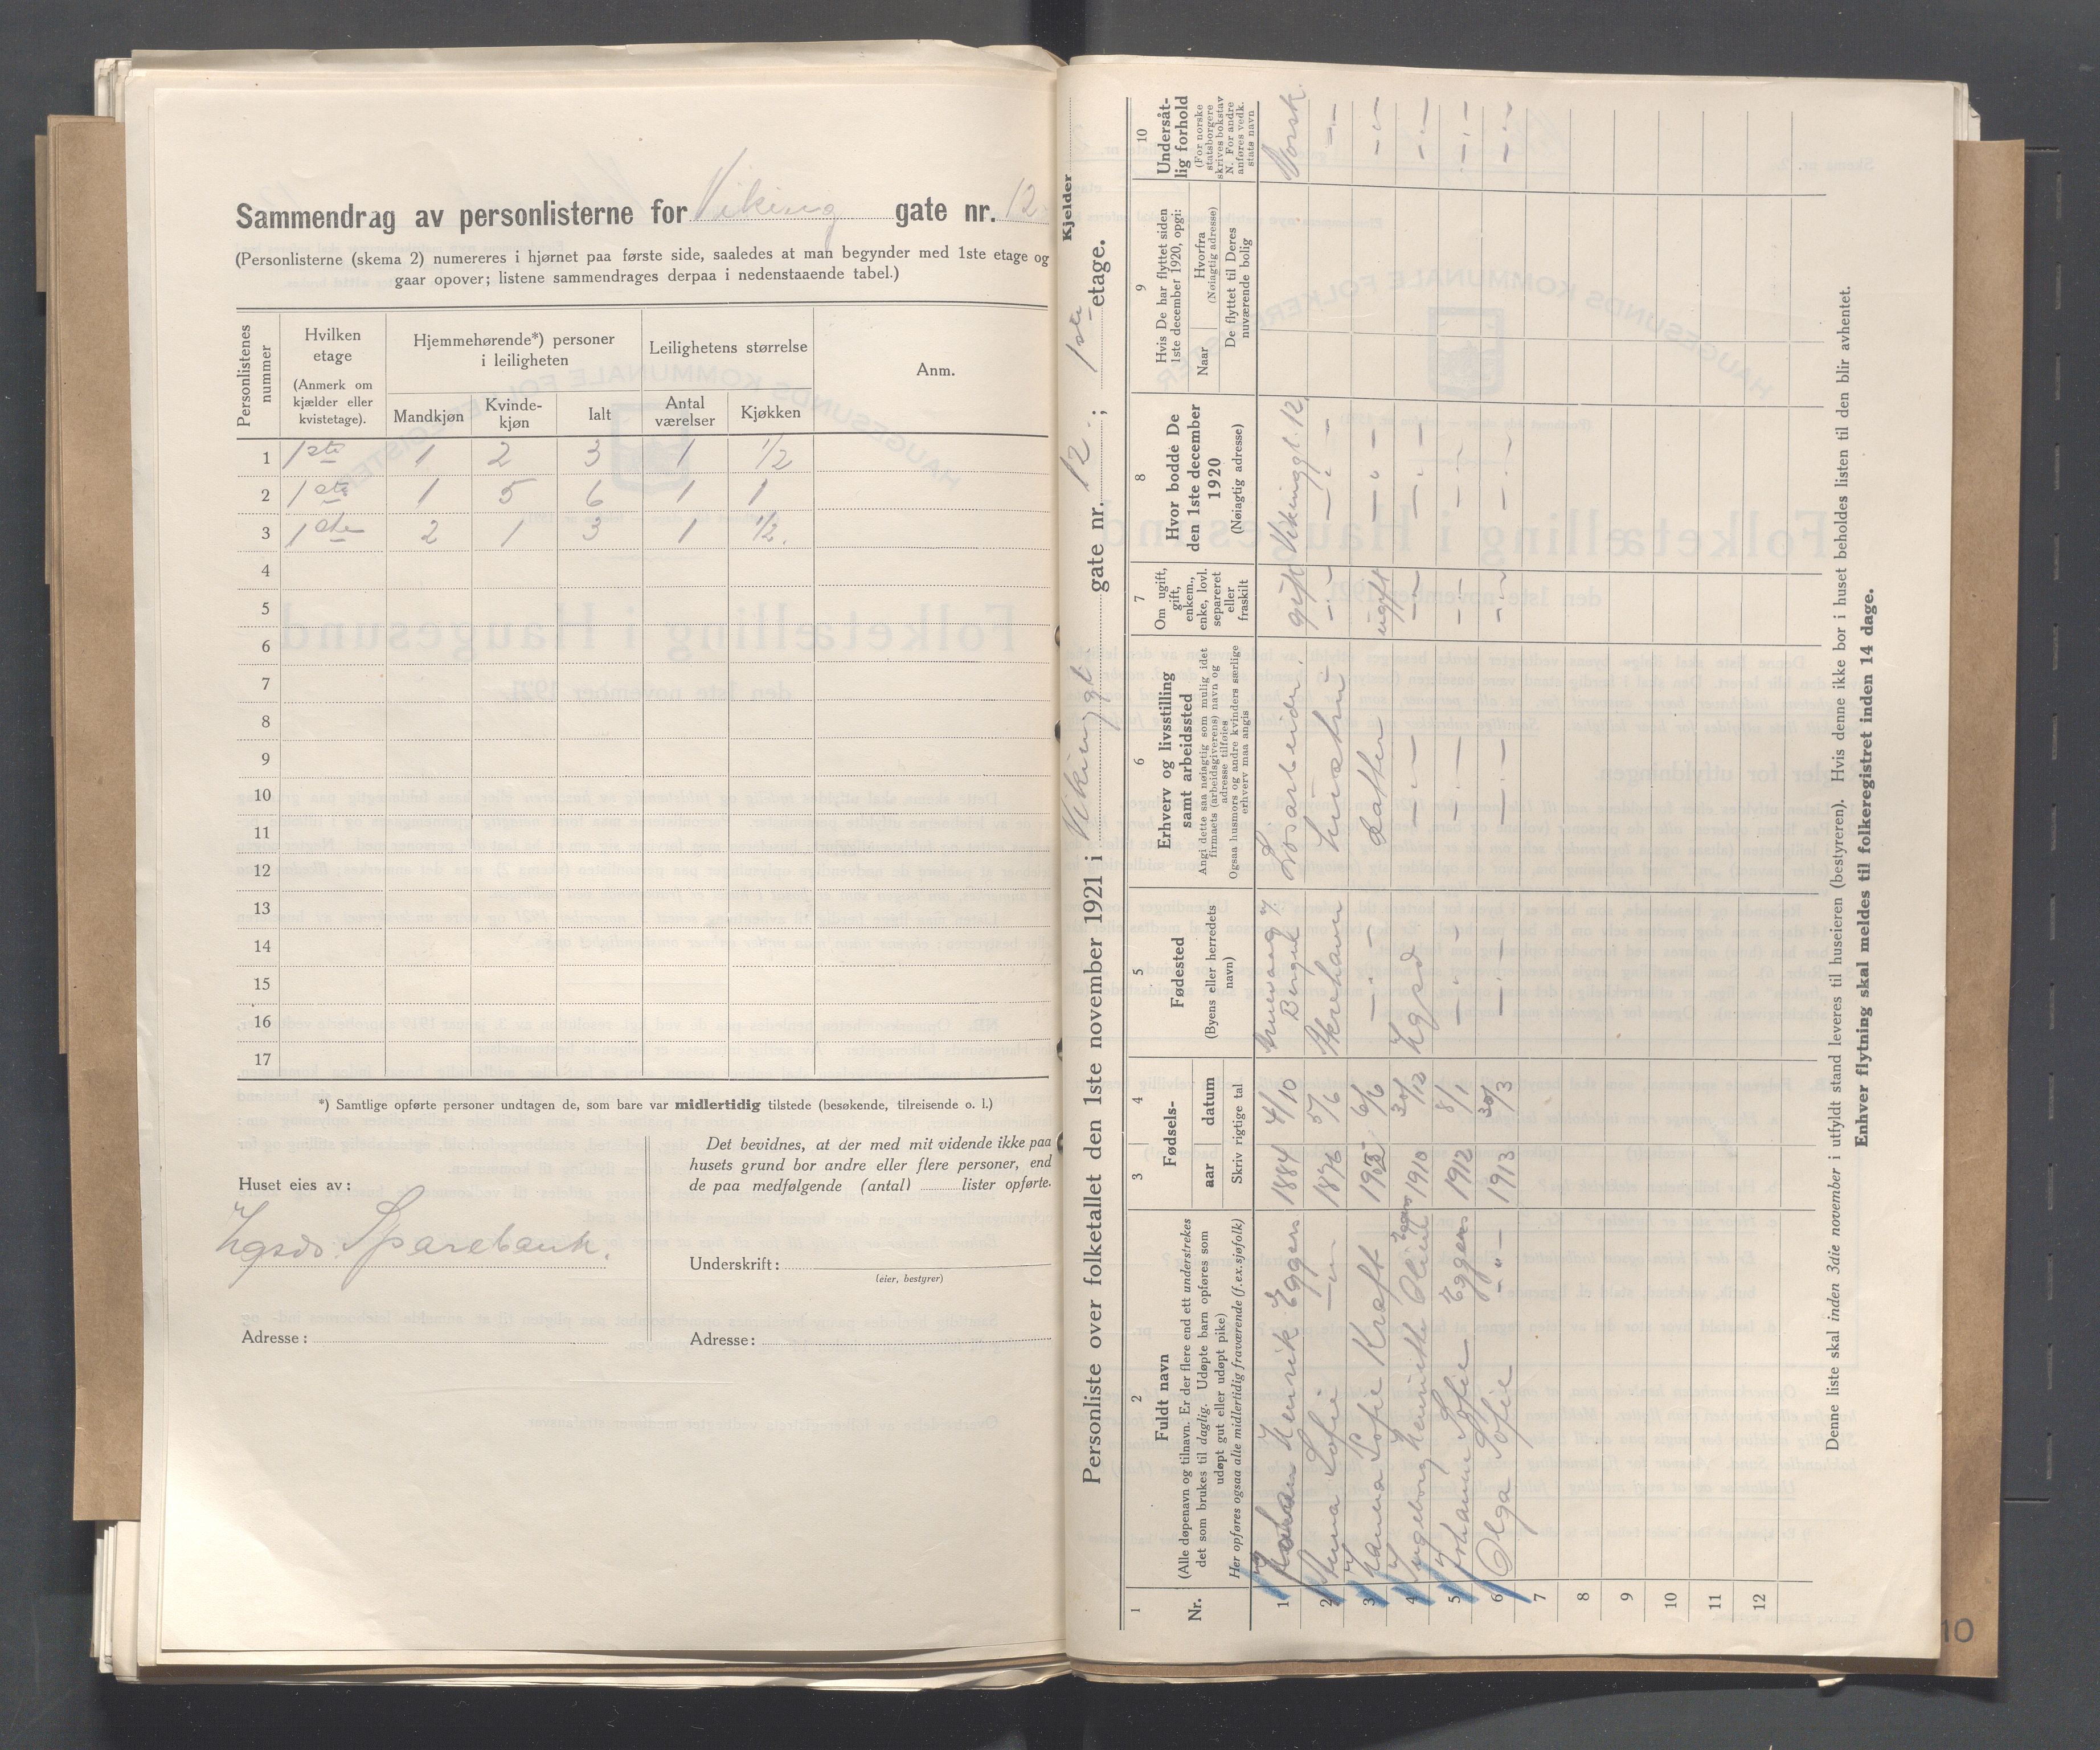 Sammendrag av personlisterne for Viking gate nr. 12
(Personlisterne (skema 2) numereres i hjørnet paa første side, saaledes at man begynder med 1ste etage og
gaar opover; listene sammendrages derpaa i nedenstaaende tabel.)
Personlistenes nummer
Hvilken etage (Anmerk om kjælder eller kvistetage).
Hjemmehørende*) personer i leiligheten
Leilighetens størrelse
Anm.
Mandkjøn Kvinde-kjøn Ialt Antal værelser Kjøkken
1 1ste 1 2 3 1 1/2
2 1ste 1 5 6 1 1
3 1ste 2 1 3 1 1/2.
4
5
6
7
8
9
10
11
12
13
14
15
16
17
*) Samtlige opførte personer undtagen de, som bare var midlertidig tilstede (besøkende, tilreisende o. l.)
Huset eies av:
Hgsds. Sparebank.
Adresse:
Det bevidnes, at der med mit vidende ikke paa
husets grund bor andre eller flere personer, end
de paa medfølgende (antal) lister opførte.
Underskrift:
(eier, bestyrer)
Adresse:
Kjelder
Personliste over folketallet den 1ste november 1921 i Vikinggt. gate nr. 12.; 1ste etage.
1 2 3 4 5 6 7 8 9 10
Nr.
Fuldt navn
(Alle døpenavn og tilnavn. Er der flere end ett understrekes
det som brukes til daglig. Udøpte barn opføres som
udøpt gut eller udøpt pike)
Her opføres ogsaa alle midlertidig fraværende (f.ex.sjøfolk)
Fødsels-
aar datum
Skriv rigtige tal
Fødested
(Byens eller herredets
navn)
Erhverv og livsstilling
samt arbeidssted
Angi dette saa nøiagtig som mulig idet
firmaets (arbeidsgiverens) navn og
adresse tilføies
Ogsaa husmors og andre kvinders særlige
erhverv maa angis
Om ugift,
gift,
enkem.,
enke, lovl.
separeret
eller
fraskilt
Hvor bodde De
den 1ste december
1920
(Nøiagtig adresse)
Hvis De har flyttet siden
1ste december 1920, opgi:
Naar
Hvorfra
(Nøiagtig adresse)
De flyttet til Deres
nuværende bolig
Undersåt-
lig forhold
(For norske
statsborgere
skrives bokstav
N. For andre
anføres vedk.
stats navn
1 Johan Henrik Eggers 1884 4/10 Bergen Løsarbeider. gift Vikinggt. 12. Norsk.
2 Anna Sofie —"— 1876 5/6 Skrehavn hustru —"— —"— —"—
3 Hanna Sofie Kraft 6/6 —"— datter ugift —"— —"—
4 Ingeborg Henriette Eggers 1910 30/12 Hgsd —"— —"— —"— —"—
5 Johanne Sofie Eggers 1912 8/1 —"— —"— —"— —"— —"—
6 Olga Sofie —"— 1913 30/3 —"— —"— —"— —"— —"—
7
8
9
10
11
12
Denne liste skal inden 3die november i utfyldt stand leveres til huseieren (bestyreren). Hvis denne ikke bor i huset beholdes listen til den blir avhentet.
Enhver flytning skal meldes til folkeregistret inden 14 dage.
10